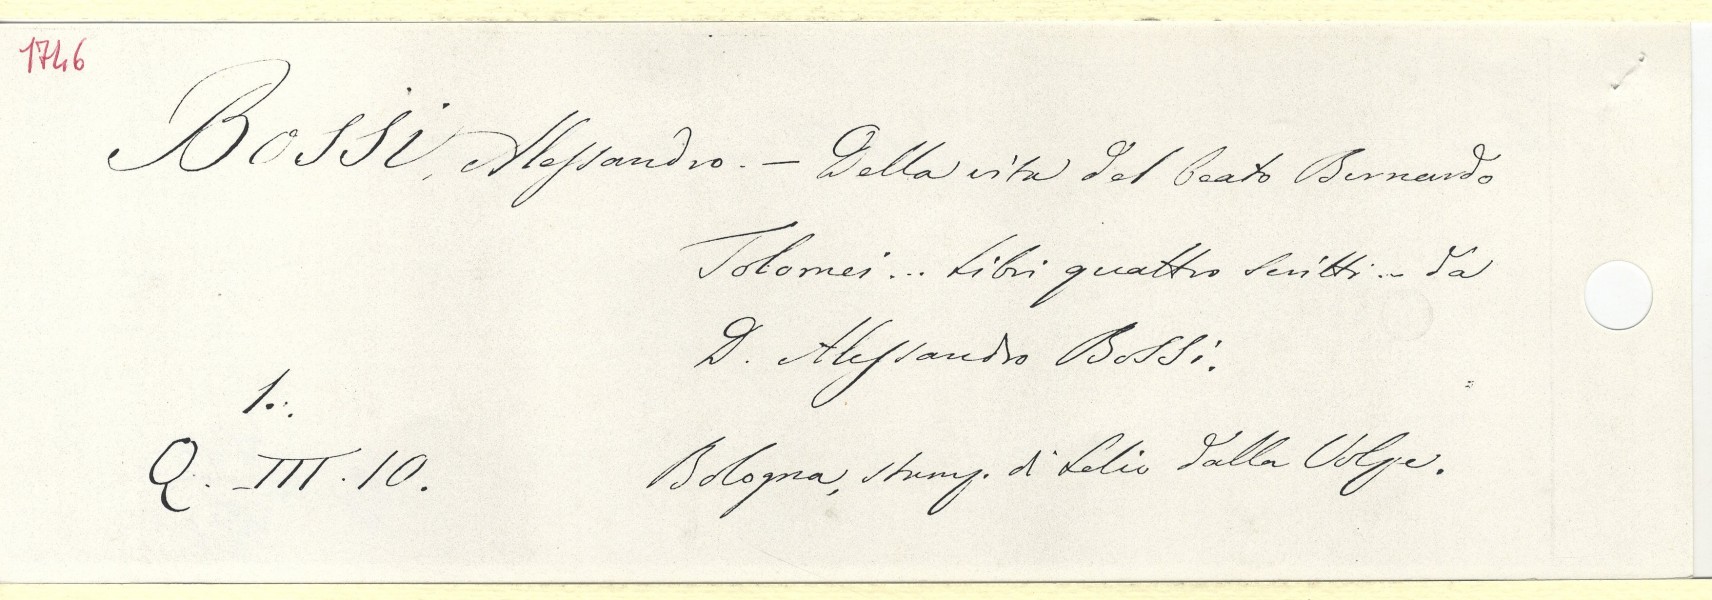 1746
Bossi, Alessandro. — Della vita del beato Bernardo
Tolomei... Libri quattro scritti... da
D. Alessandro Bossi.
1..
Q. III. 10.
Bologna, stamp. di Lelio dalla Volpe.